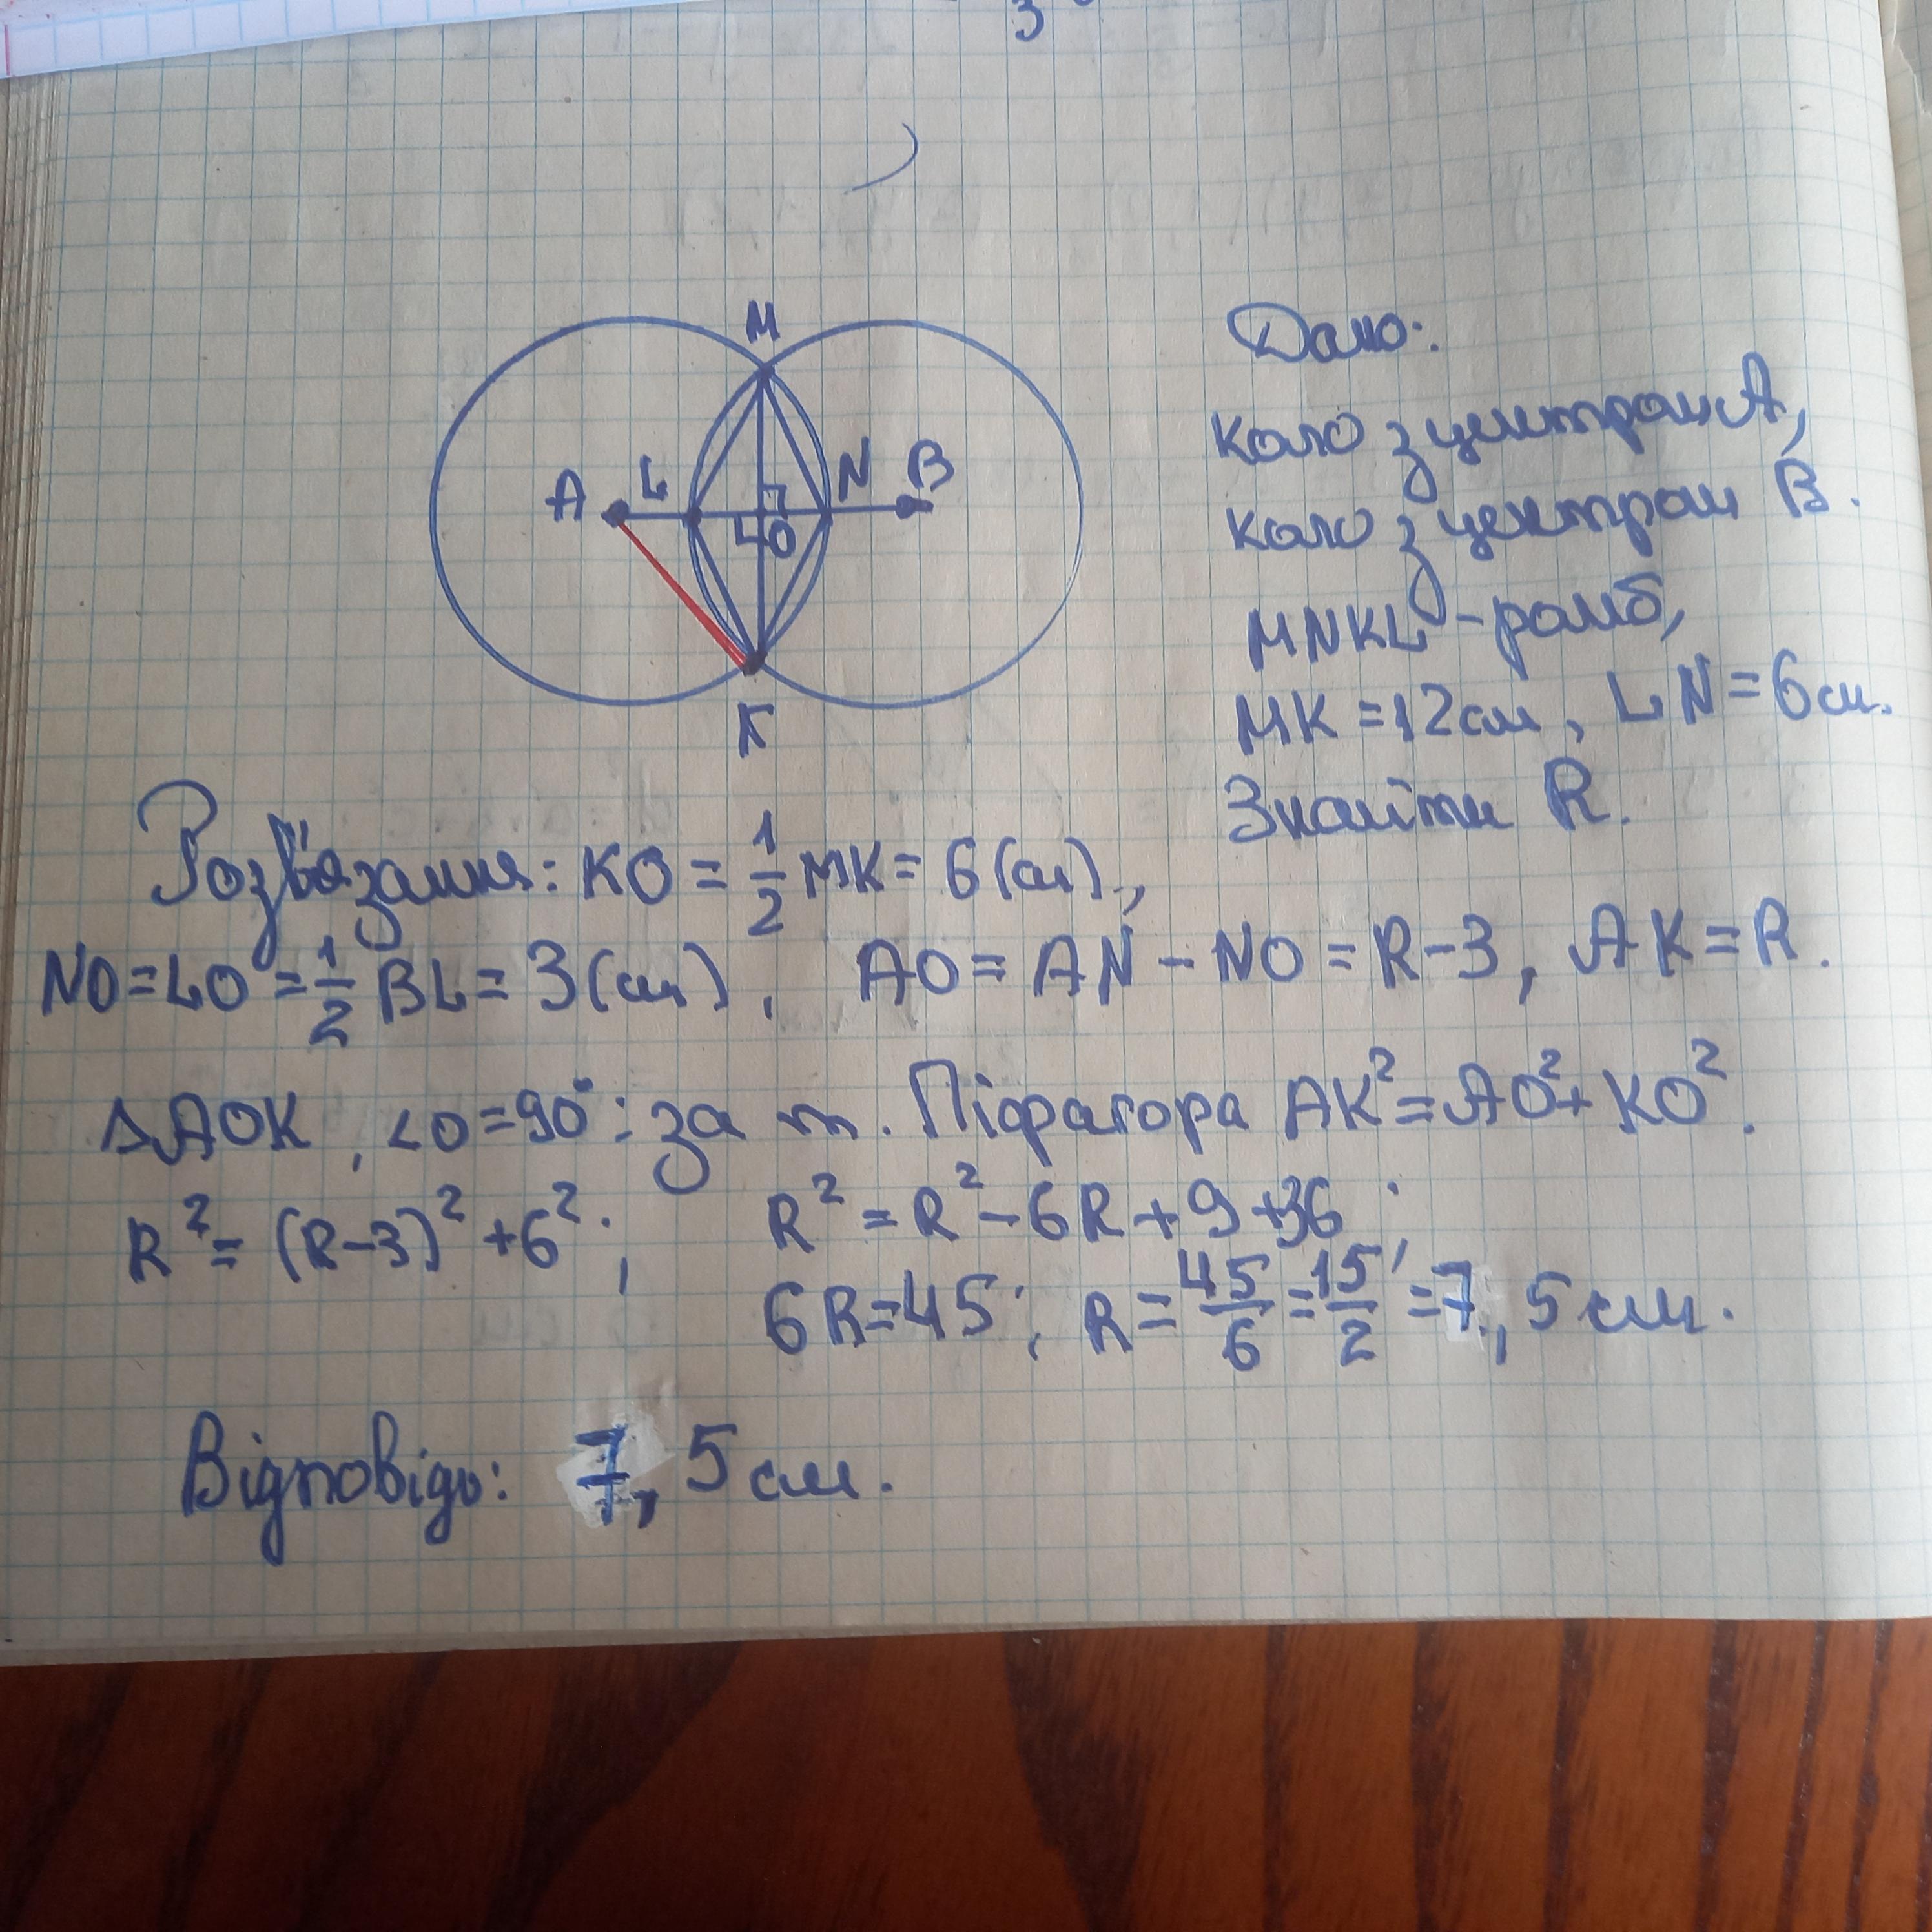 3
M
A L N B
O
K
Дано:
коло з центром A,
коло з центром B.
MNKL - ромб,
MK = 12 см, LN = 6 см.
Знайти R.
Розв'язання: KO = 1/2 MK = 6 (см).,
NO = LO = 1/2 BL = 3 (см), AO = AN - NO = R - 3, AK = R.
△AOK, ∠O = 90°: за т. Піфагора AK² = AO² + KO².
R² = (R-3)² + 6²; R² = R² - 6R + 9 + 36;
6R = 45; R = 45/6 = 15/2 = 7,5 см.
Відповідь: 7,5 см.